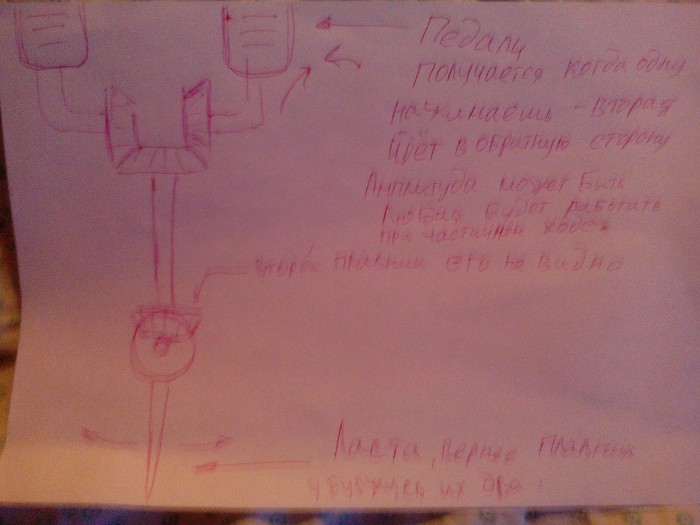 Педали
получается когда одну
нажимаешь - вторая
идёт в обратную сторону
Амплитуда может быть
любая будет работать
при частичном ходе
второй плавник его не видно
Ласта, вернее плавник
у буржуев их два